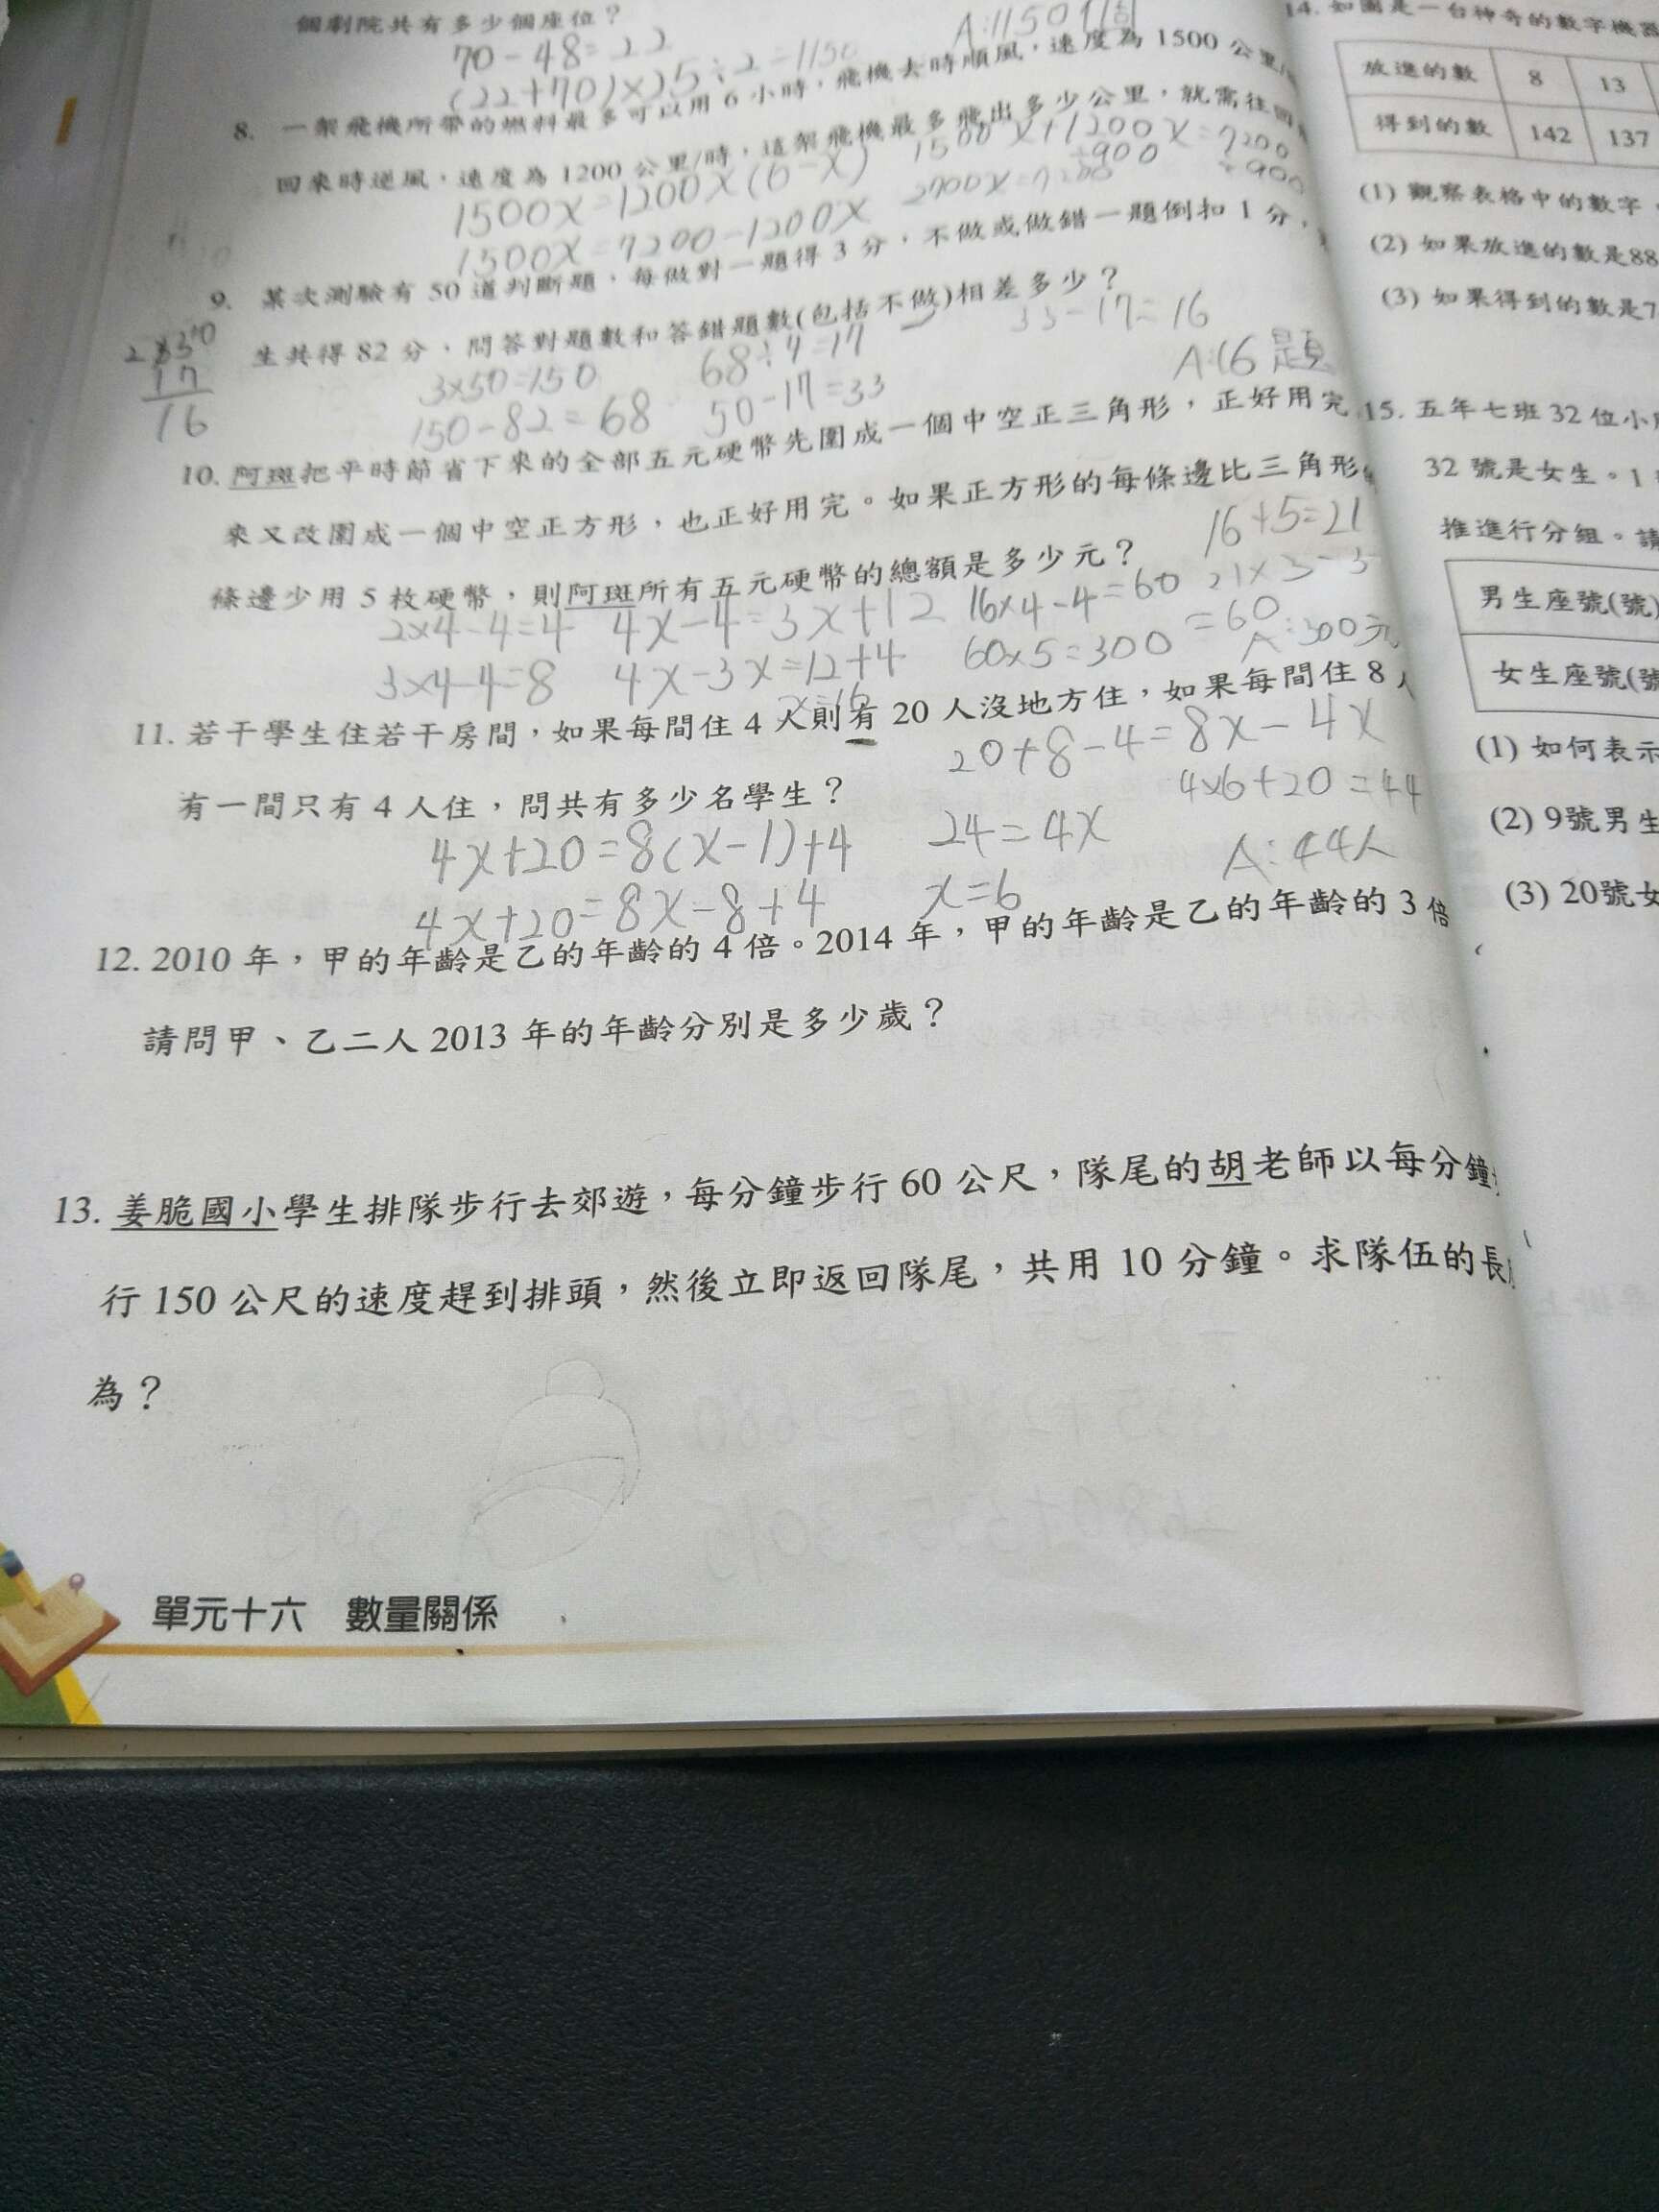 個劇院共有多少個座位？
70-48=22
(22+70)×25÷2=1150
A:1150個
8. 一架飛機所帶的燃料最多可以用 6 小時，飛機去時順風，速度為 1500 公里/
回來時逆風，速度為 1200 公里/時，這架飛機最多飛出多少公里，就需往回
1500x=1200×(6-x)
1500x=7200-1200x
1500x+1200x=7200
2700x=7200
÷900 ÷900
9. 某次測驗有 50 道判斷題，每做對一題得 3 分，不做或做錯一題倒扣 1 分，
生共得 82 分，問答對題數和答錯題數(包括不做)相差多少？
3×50=150
150-82=68
68÷4=17
50-17=33
33-17=16
A:16題
17
16
10. 阿斑把平時節省下來的全部五元硬幣先圍成一個中空正三角形，正好用完
來又改圍成一個中空正方形，也正好用完。如果正方形的每條邊比三角形
條邊少用 5 枚硬幣，則阿斑所有五元硬幣的總額是多少元？
16+5=21
21×3-3
=60
2×4-4=4
3×4-4=8
4x-4=3x+12
4x-3x=12+4
x=16
16×4-4=60
60×5=300
A:300元
11. 若干學生住若干房間，如果每間住 4 人則有 20 人沒地方住，如果每間住 8 人
有一間只有 4 人住，問共有多少名學生？
4x+20=8(x-1)+4
4x+20=8x-8+4
20+8-4=8x-4x
24=4x
x=6
4×6+20=44
A:44人
12. 2010 年，甲的年齡是乙的年齡的 4 倍。2014 年，甲的年齡是乙的年齡的 3 倍
請問甲、乙二人 2013 年的年齡分別是多少歲？
13. 姜脆國小學生排隊步行去郊遊，每分鐘步行 60 公尺，隊尾的胡老師以每分鐘
行 150 公尺的速度趕到排頭，然後立即返回隊尾，共用 10 分鐘。求隊伍的長
為？
單元十六 數量關係
14. 如圖是一台神奇的數字機器
放進的數 8 13
得到的數 142 137
(1) 觀察表格中的數字
(2) 如果放進的數是88
(3) 如果得到的數是7
15. 五年七班 32 位小
32 號是女生。1
推進行分組。請
男生座號(號)
女生座號(號
(1) 如何表示
(2) 9號男生
(3) 20號女